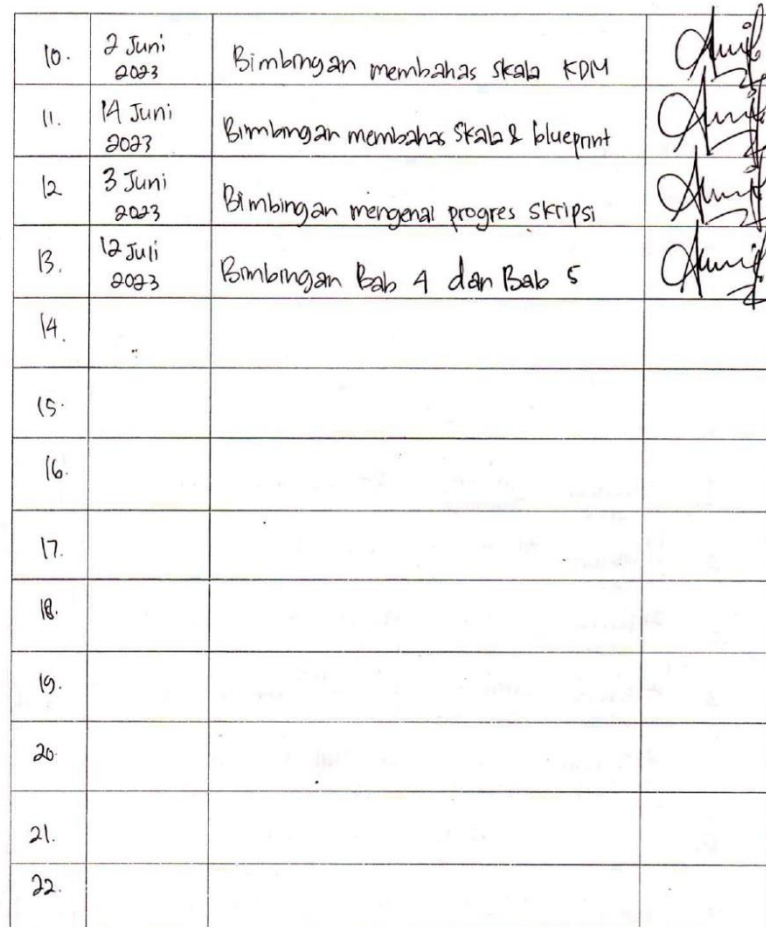 10. 2 Juni 2023 Bimbingan membahas skala KDM
11. 14 Juni 2023 Bimbingan membahas skala & blueprint
12 3 Juni 2023 Bimbingan mengenai progres skripsi
13. 12 Juli 2023 Bimbingan Bab 4 dan Bab 5
14.
15.
16.
17.
18.
19.
20.
21.
22.